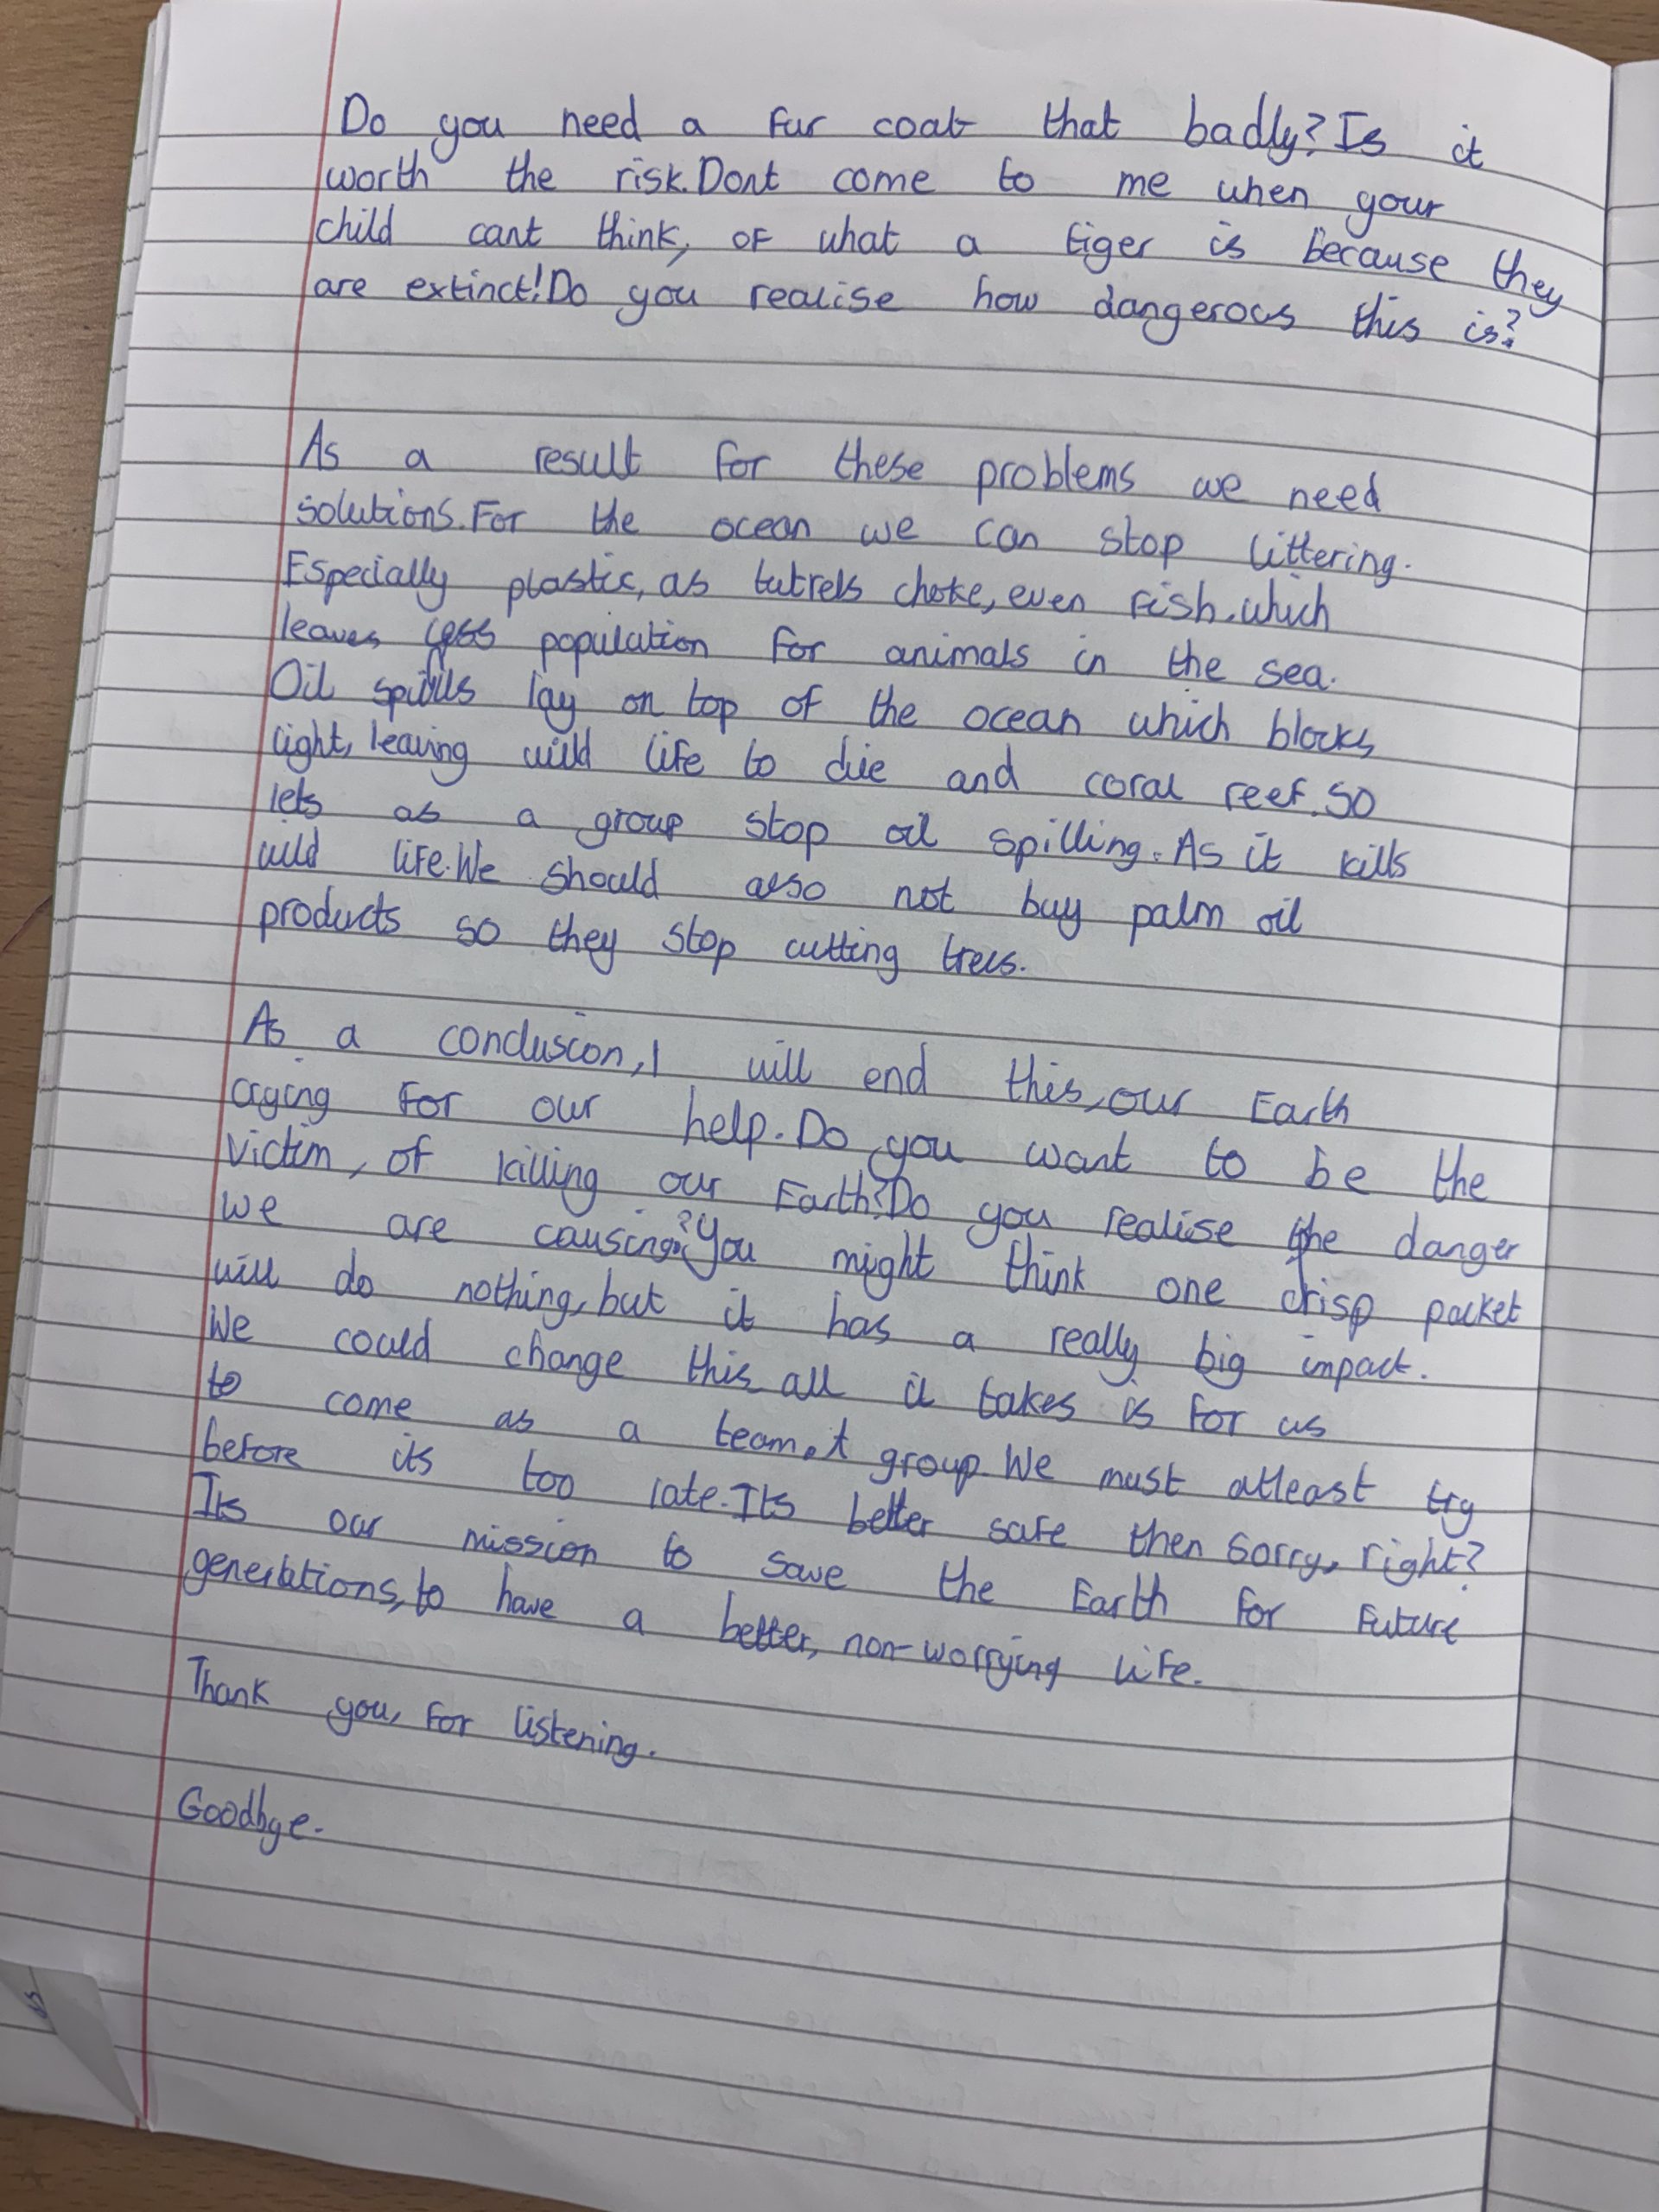 Do you need a fur coat that badly? Is it
worth the risk. Dont come to me when your
child cant think, of what a tiger is because they
are extinct! Do you realise how dangerous this is?
As a result for these problems we need
solutions. For the ocean we can stop littering.
Especially plastic, as tutrels choke, even fish. which
leaves less population for animals in the sea.
Oil spills lay on top of the ocean which blocks
light, leaving wild life to die and coral reef. So
lets as a group stop oil spilling. As it kills
wild life. We should also not buy palm oil
products so they stop cutting trees.
As a conclusion, I will end this, our Earth
crying for our help. Do you want to be the
victim, of killing our Earth? Do you realise the danger
we are causing? You might think one crisp packet
will do nothing, but it has a really big impact.
We could change this all it takes is for us
to come as a team. A group. We must atleast try
before its too late. Its better safe then sorry, right?
Its our mission to save the Earth for future
generations, to have a better, non-worrying life.
Thank you, for listening.
Goodbye.